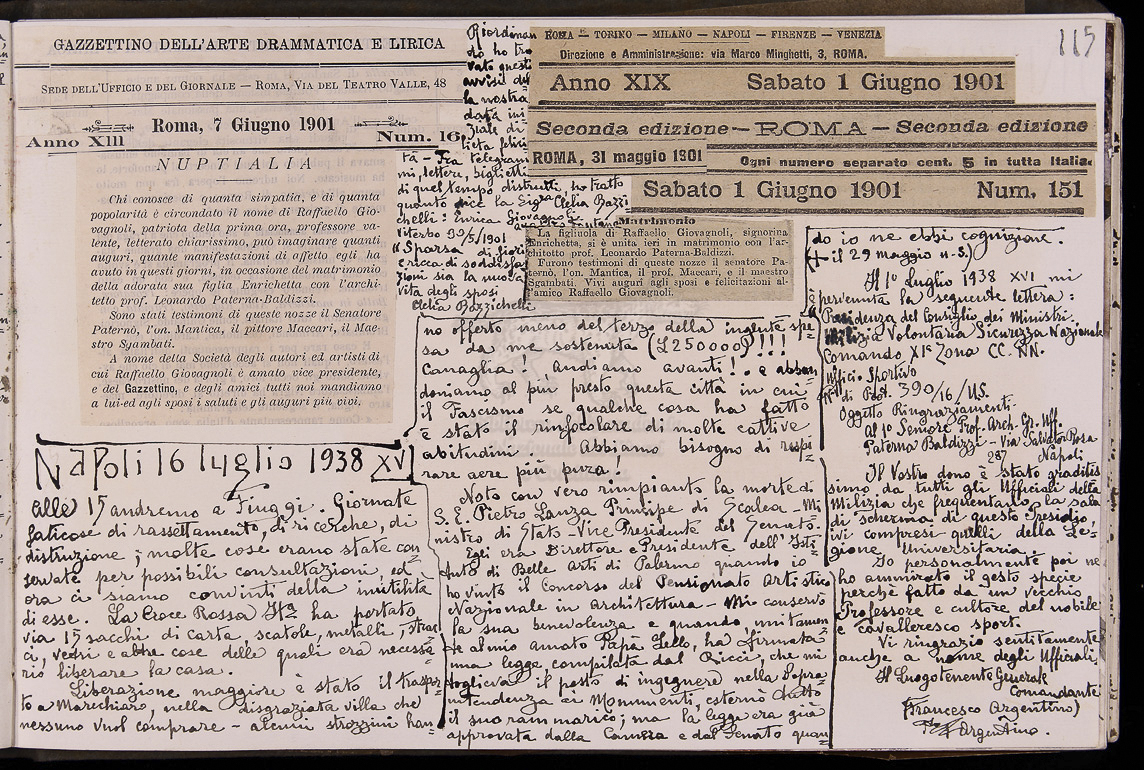 115
GAZZETTINO DELL'ARTE DRAMMATICA E LIRICA
SEDE DELL'UFFICIO E DEL GIORNALE — ROMA, VIA DEL TEATRO VALLE, 48
Roma, 7 Giugno 1901
Anno XIII Num. 16
NUPTIALIA
Chi conosce di quanta simpatia, e di quanta
popolarità è circondato il nome di Raffaello Gio-
vagnoli, patriota della prima ora, professore va-
lente, letterato chiarissimo, può imaginare quanti
auguri, quante manifestazioni di affetto egli ha
avuto in questi giorni, in occasione del matrimonio
della adorata sua figlia Enrichetta con l'archi-
tetto prof. Leonardo Paterna-Baldizzi.
Sono stati testimoni di queste nozze il Senatore
Paternò, l'on. Mantica, il pittore Maccari, il Mae-
stro Sgambati.
A nome della Società degli autori ed artisti di
cui Raffaello Giovagnoli è amato vice presidente,
e del Gazzettino, e degli amici tutti noi mandiamo
a lui ed agli sposi i saluti e gli auguri più vivi.
Riordinan
do ho tro
vato questi
avvisi del
la nostra
data ini
ziale di
lieta felici
tà — Fra telegram
mi, lettere, biglietti
di quel tempo distrutti, ho tratto
quanto dice la Sigra Clelia Bazzi
chelli: Enrica Giovagnoli
Viterbo 30/5/1901
"Sparsa di gioie
e ricca di soddisfa
zioni sia la nuova
vita degli sposi
Clelia Bazzichelli
ROMA — TORINO — MILANO — NAPOLI — FIRENZE — VENEZIA
Direzione e Amministrazione: via Marco Minghetti, 3, ROMA.
Anno XIX Sabato 1 Giugno 1901
Seconda edizione — ROMA — Seconda edizione
ROMA, 31 maggio 1901 Ogni numero separato cent. 5 in tutta Italia.
Sabato 1 Giugno 1901 Num. 151
Matrimonio
La figliuola di Raffaello Giovagnoli, signorina
Enrichetta, si è unita ieri in matrimonio con l'ar-
chitetto prof. Leonardo Paterna-Baldizzi.
Furono testimoni di queste nozze il senatore Pa-
ternò, l'on. Mantica, il prof. Maccari, e il maestro
Sgambati. Vivi auguri agli sposi e felicitazioni al-
l'amico Raffaello Giovagnoli.
Napoli 16 luglio 1938 XVI
alle 15 andremo a Fiuggi. Giornate
faticose di rassettamento, di ricerche, di
distruzione; molte cose erano state con
servate per possibili consultazioni, ed
ora ci siamo convinti della inutilità
di esse. La Croce Rossa It. ha portato
via 15 sacchi di carta, scatole, metalli, strac
ci, vetri e altre cose delle quali era necessa
rio liberare la casa.
Liberazione maggiore è stato il traspor
to a Marechiaro, nella disgraziata villa che
nessuno vuol comprare — alcuni strozzini han
no offerto meno del terzo della ingente spe
sa da me sostenuta (£250000)!!!
Canaglia! Andiamo avanti! e abban
doniamo al più presto questa città in cui
il Fascismo se qualche cosa ha fatto
è stato il rinfocolare di molte cattive
abitudini. Abbiamo bisogno di respi
rare aere più pura!
Noto con vero rimpianto la morte di
S. E. Pietro Lanza Principe di Scalea — Mi
nistro di Stato — Vice Presidente del Senato.
Egli era Direttore e Presidente dell'Isti
tuto di Belle Arti di Palermo quando io
ho vinto il Concorso del Pensionato Artistico
Nazionale in Architettura — Mi conservò
la sua benevolenza e quando, unitamen
te al mio amato Papà Lello, ha firmata
una legge, compilata dal Ricci, che mi
toglieva il posto di ingegnere nella Sopra
intendenza ai Monumenti, esternò tutto
il suo rammarico; ma la legge era già
approvata dalla Camera e dal Senato quan
do io ne ebbi cognizione.
(+ il 29 maggio u.s.)
Il 1º Luglio 1938 XVI mi
è pervenuta la seguente lettera:
Presidenza del Consiglio dei Ministri
Milizia Volontaria Sicurezza Nazionale
Comando XIª Zona CC. NN.
Ufficio Sportivo
Nº di Prot. 390/16/U.S.
Oggetto Ringraziamenti.
Al 1º Seniore Prof. Arch. Gr. Uff.
Paterna Baldizzi — Via Salvator Rosa
287 Napoli
Il Vostro dono è stato graditis
simo da tutti gli Ufficiali della
Milizia che frequentano la sala
di scherma di questo Presidio,
ivi compresi quelli della Le
gione Universitaria.
Io personalmente poi ne
ho ammirato il gesto specie
perchè fatto da un vecchio
Professore e cultore del nobile
e cavalleresco sport.
Vi ringrazio sentitamente
anche a nome degli Ufficiali.
Il Luogotenente Generale
Comandante
(Francesco Argentino)
F. Argentino.